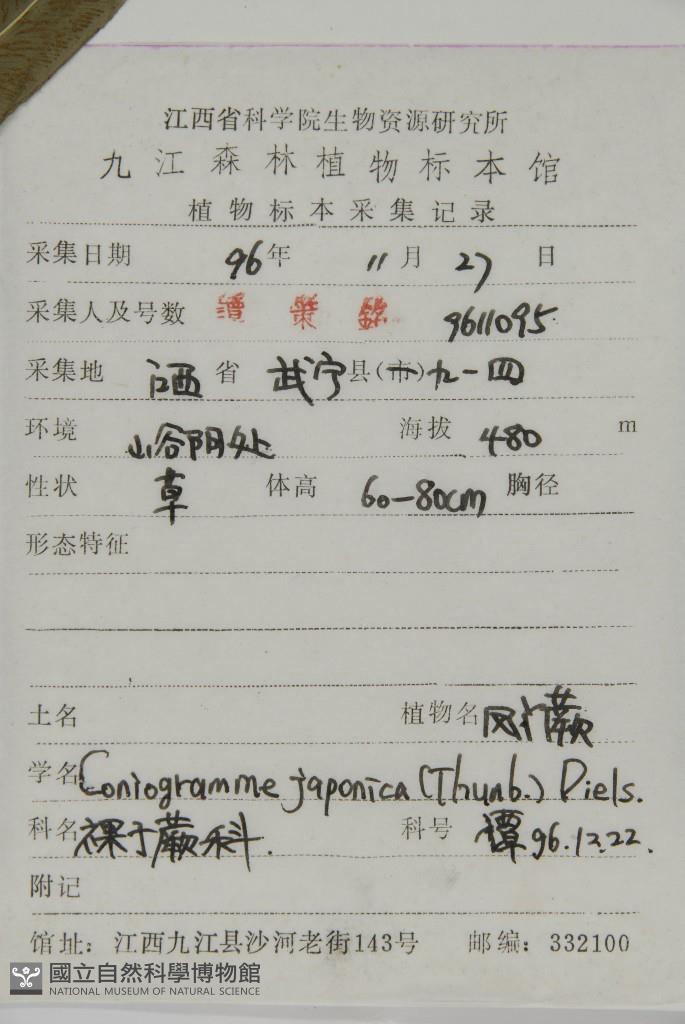 江西省科学院生物资源研究所
九江森林植物标本馆
植物标本采集记录
采集日期 96年 11月 27日
采集人及号数 谭策铭 9611095
采集地 江西省 武宁县(市)九一四
环境 山谷阴处 海拔 480 m
性状 草 体高 60—80cm 胸径
形态特征
土名 植物名 凤丫蕨
学名 Coniogramme japonica (Thunb.) Diels.
科名 裸子蕨科. 科号 谭 96.12.22.
附记
馆址：江西九江县沙河老街143号 邮编：332100
國立自然科學博物館
NATIONAL MUSEUM OF NATURAL SCIENCE